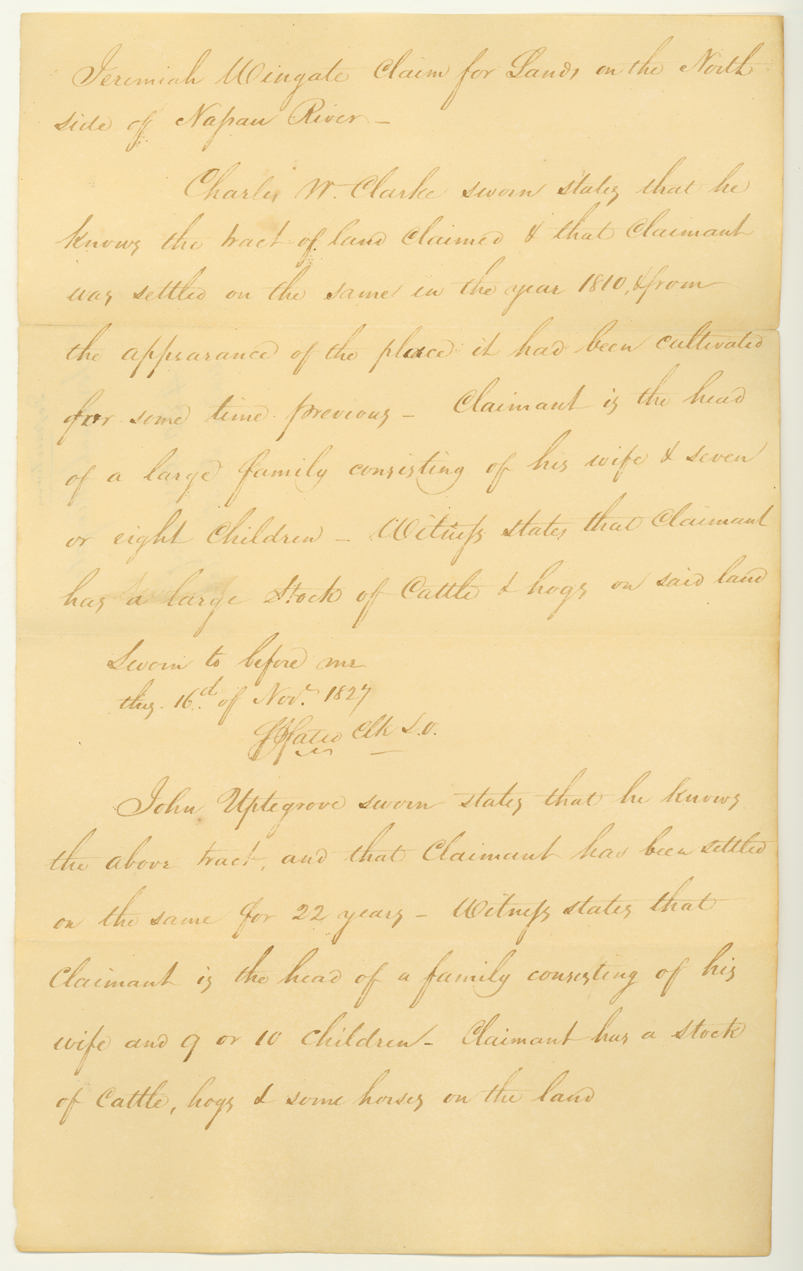 Jeremiah Wingate Claim for Lands on the North
side of Nassau River –
Charles W. Clarke sworn states that he
knows the tract of land claimed & that Claimant
was settled on the same in the year 1810, & from
the appearance of the place it had been cultivated
for some time previous – Claimant is the head
of a large family consisting of his wife & seven
or eight Children – Witness states that Claimant
has a large Stock of Cattle & hogs on said land
Sworn to before me
this 16d of Nov. 1827
Clk L.O.
John Uptegrove sworn states that he knows
the above tract, and that Claimant has been settled
on the same for 22 years – Witness states that
Claimant is the head of a family consisting of his
wife and 9 or 10 Children – Claimant has a stock
of Cattle, hogs & some horses on the land